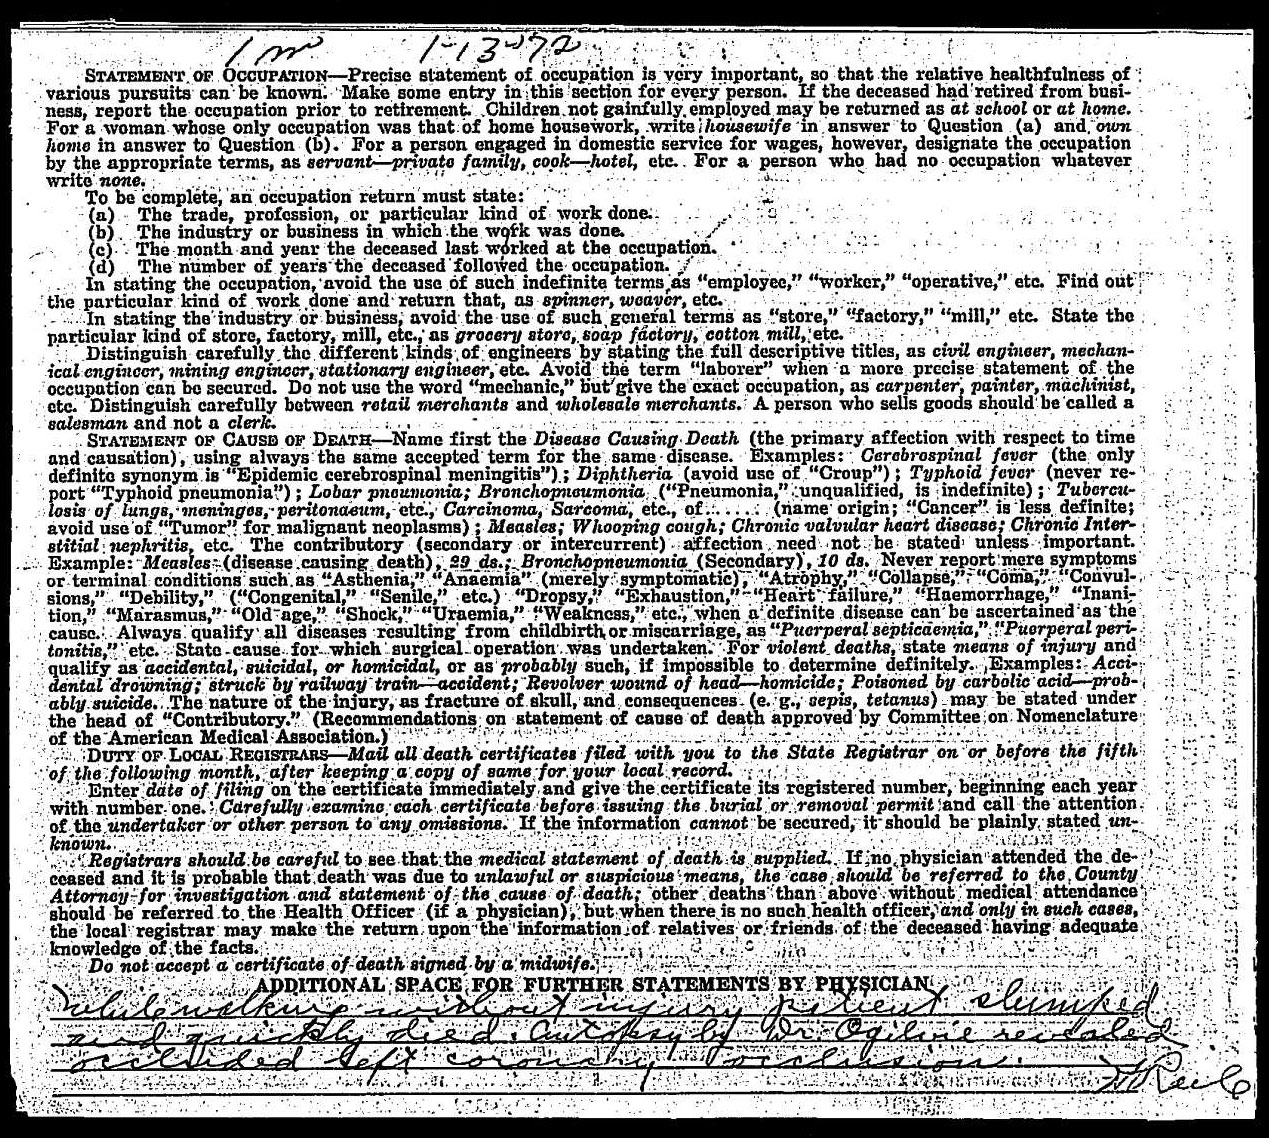 1 m 1-13-72
STATEMENT OF OCCUPATION—Precise statement of occupation is very important, so that the relative healthfulness of
various pursuits can be known. Make some entry in this section for every person. If the deceased had retired from busi-
ness, report the occupation prior to retirement. Children not gainfully employed may be returned as at school or at home.
For a woman whose only occupation was that of home housework, write housewife in answer to Question (a) and own
home in answer to Question (b). For a person engaged in domestic service for wages, however, designate the occupation
by the appropriate terms, as servant—private family, cook—hotel, etc. For a person who had no occupation whatever
write none.
To be complete, an occupation return must state:
(a) The trade, profession, or particular kind of work done.
(b) The industry or business in which the work was done.
(c) The month and year the deceased last worked at the occupation.
(d) The number of years the deceased followed the occupation.
In stating the occupation, avoid the use of such indefinite terms as "employee," "worker," "operative," etc. Find out
the particular kind of work done and return that, as spinner, weaver, etc.
In stating the industry or business, avoid the use of such general terms as "store," "factory," "mill," etc. State the
particular kind of store, factory, mill, etc., as grocery store, soap factory, cotton mill, etc.
Distinguish carefully the different kinds of engineers by stating the full descriptive titles, as civil engineer, mechan-
ical engineer, mining engineer, stationary engineer, etc. Avoid the term "laborer" when a more precise statement of the
occupation can be secured. Do not use the word "mechanic," but give the exact occupation, as carpenter, painter, machinist,
etc. Distinguish carefully between retail merchants and wholesale merchants. A person who sells goods should be called a
salesman and not a clerk.
STATEMENT OF CAUSE OF DEATH—Name first the Disease Causing Death (the primary affection with respect to time
and causation), using always the same accepted term for the same disease. Examples: Cerebrospinal fever (the only
definite synonym is "Epidemic cerebrospinal meningitis"); Diphtheria (avoid use of "Croup"); Typhoid fever (never re-
port "Typhoid pneumonia"); Lobar pneumonia; Bronchopneumonia ("Pneumonia," unqualified, is indefinite); Tubercu-
losis of lungs, meninges, peritonaeum, etc., Carcinoma, Sarcoma, etc., of...... (name origin; "Cancer" is less definite;
avoid use of "Tumor" for malignant neoplasms); Measles; Whooping cough; Chronic valvular heart disease; Chronic Inter-
stitial nephritis, etc. The contributory (secondary or intercurrent) affection need not be stated unless important.
Example: Measles (disease causing death), 29 ds.; Bronchopneumonia (Secondary), 10 ds. Never report mere symptoms
or terminal conditions such as "Asthenia," "Anaemia" (merely symptomatic), "Atrophy," "Collapse," "Coma," "Convul-
sions," "Debility," ("Congenital," "Senile," etc.) "Dropsy," "Exhaustion," "Heart failure," "Haemorrhage," "Inani-
tion," "Marasmus," "Old age," "Shock," "Uraemia," "Weakness," etc., when a definite disease can be ascertained as the
cause. Always qualify all diseases resulting from childbirth or miscarriage, as "Puerperal septicaemia," "Puerperal peri-
tonitis," etc. State cause for which surgical operation was undertaken. For violent deaths, state means of injury and
qualify as accidental, suicidal, or homicidal, or as probably such, if impossible to determine definitely. Examples: Acci-
dental drowning; struck by railway train—accident; Revolver wound of head—homicide; Poisoned by carbolic acid—prob-
ably suicide. The nature of the injury, as fracture of skull, and consequences (e. g., sepis, tetanus) may be stated under
the head of "Contributory." (Recommendations on statement of cause of death approved by Committee on Nomenclature
of the American Medical Association.)
DUTY OF LOCAL REGISTRARS—Mail all death certificates filed with you to the State Registrar on or before the fifth
of the following month, after keeping a copy of same for your local record.
Enter date of filing on the certificate immediately and give the certificate its registered number, beginning each year
with number one. Carefully examine each certificate before issuing the burial or removal permit and call the attention
of the undertaker or other person to any omissions. If the information cannot be secured, it should be plainly stated un-
known.
Registrars should be careful to see that the medical statement of death is supplied. If no physician attended the de-
ceased and it is probable that death was due to unlawful or suspicious means, the case should be referred to the County
Attorney for investigation and statement of the cause of death; other deaths than above without medical attendance
should be referred to the Health Officer (if a physician), but when there is no such health officer, and only in such cases,
the local registrar may make the return upon the information of relatives or friends of the deceased having adequate
knowledge of the facts.
Do not accept a certificate of death signed by a midwife.
ADDITIONAL SPACE FOR FURTHER STATEMENTS BY PHYSICIAN
While walking without injury patient slumped
and quickly died. Autopsy by Dr. Ogilvie revealed
occluded left coronary occlusion.